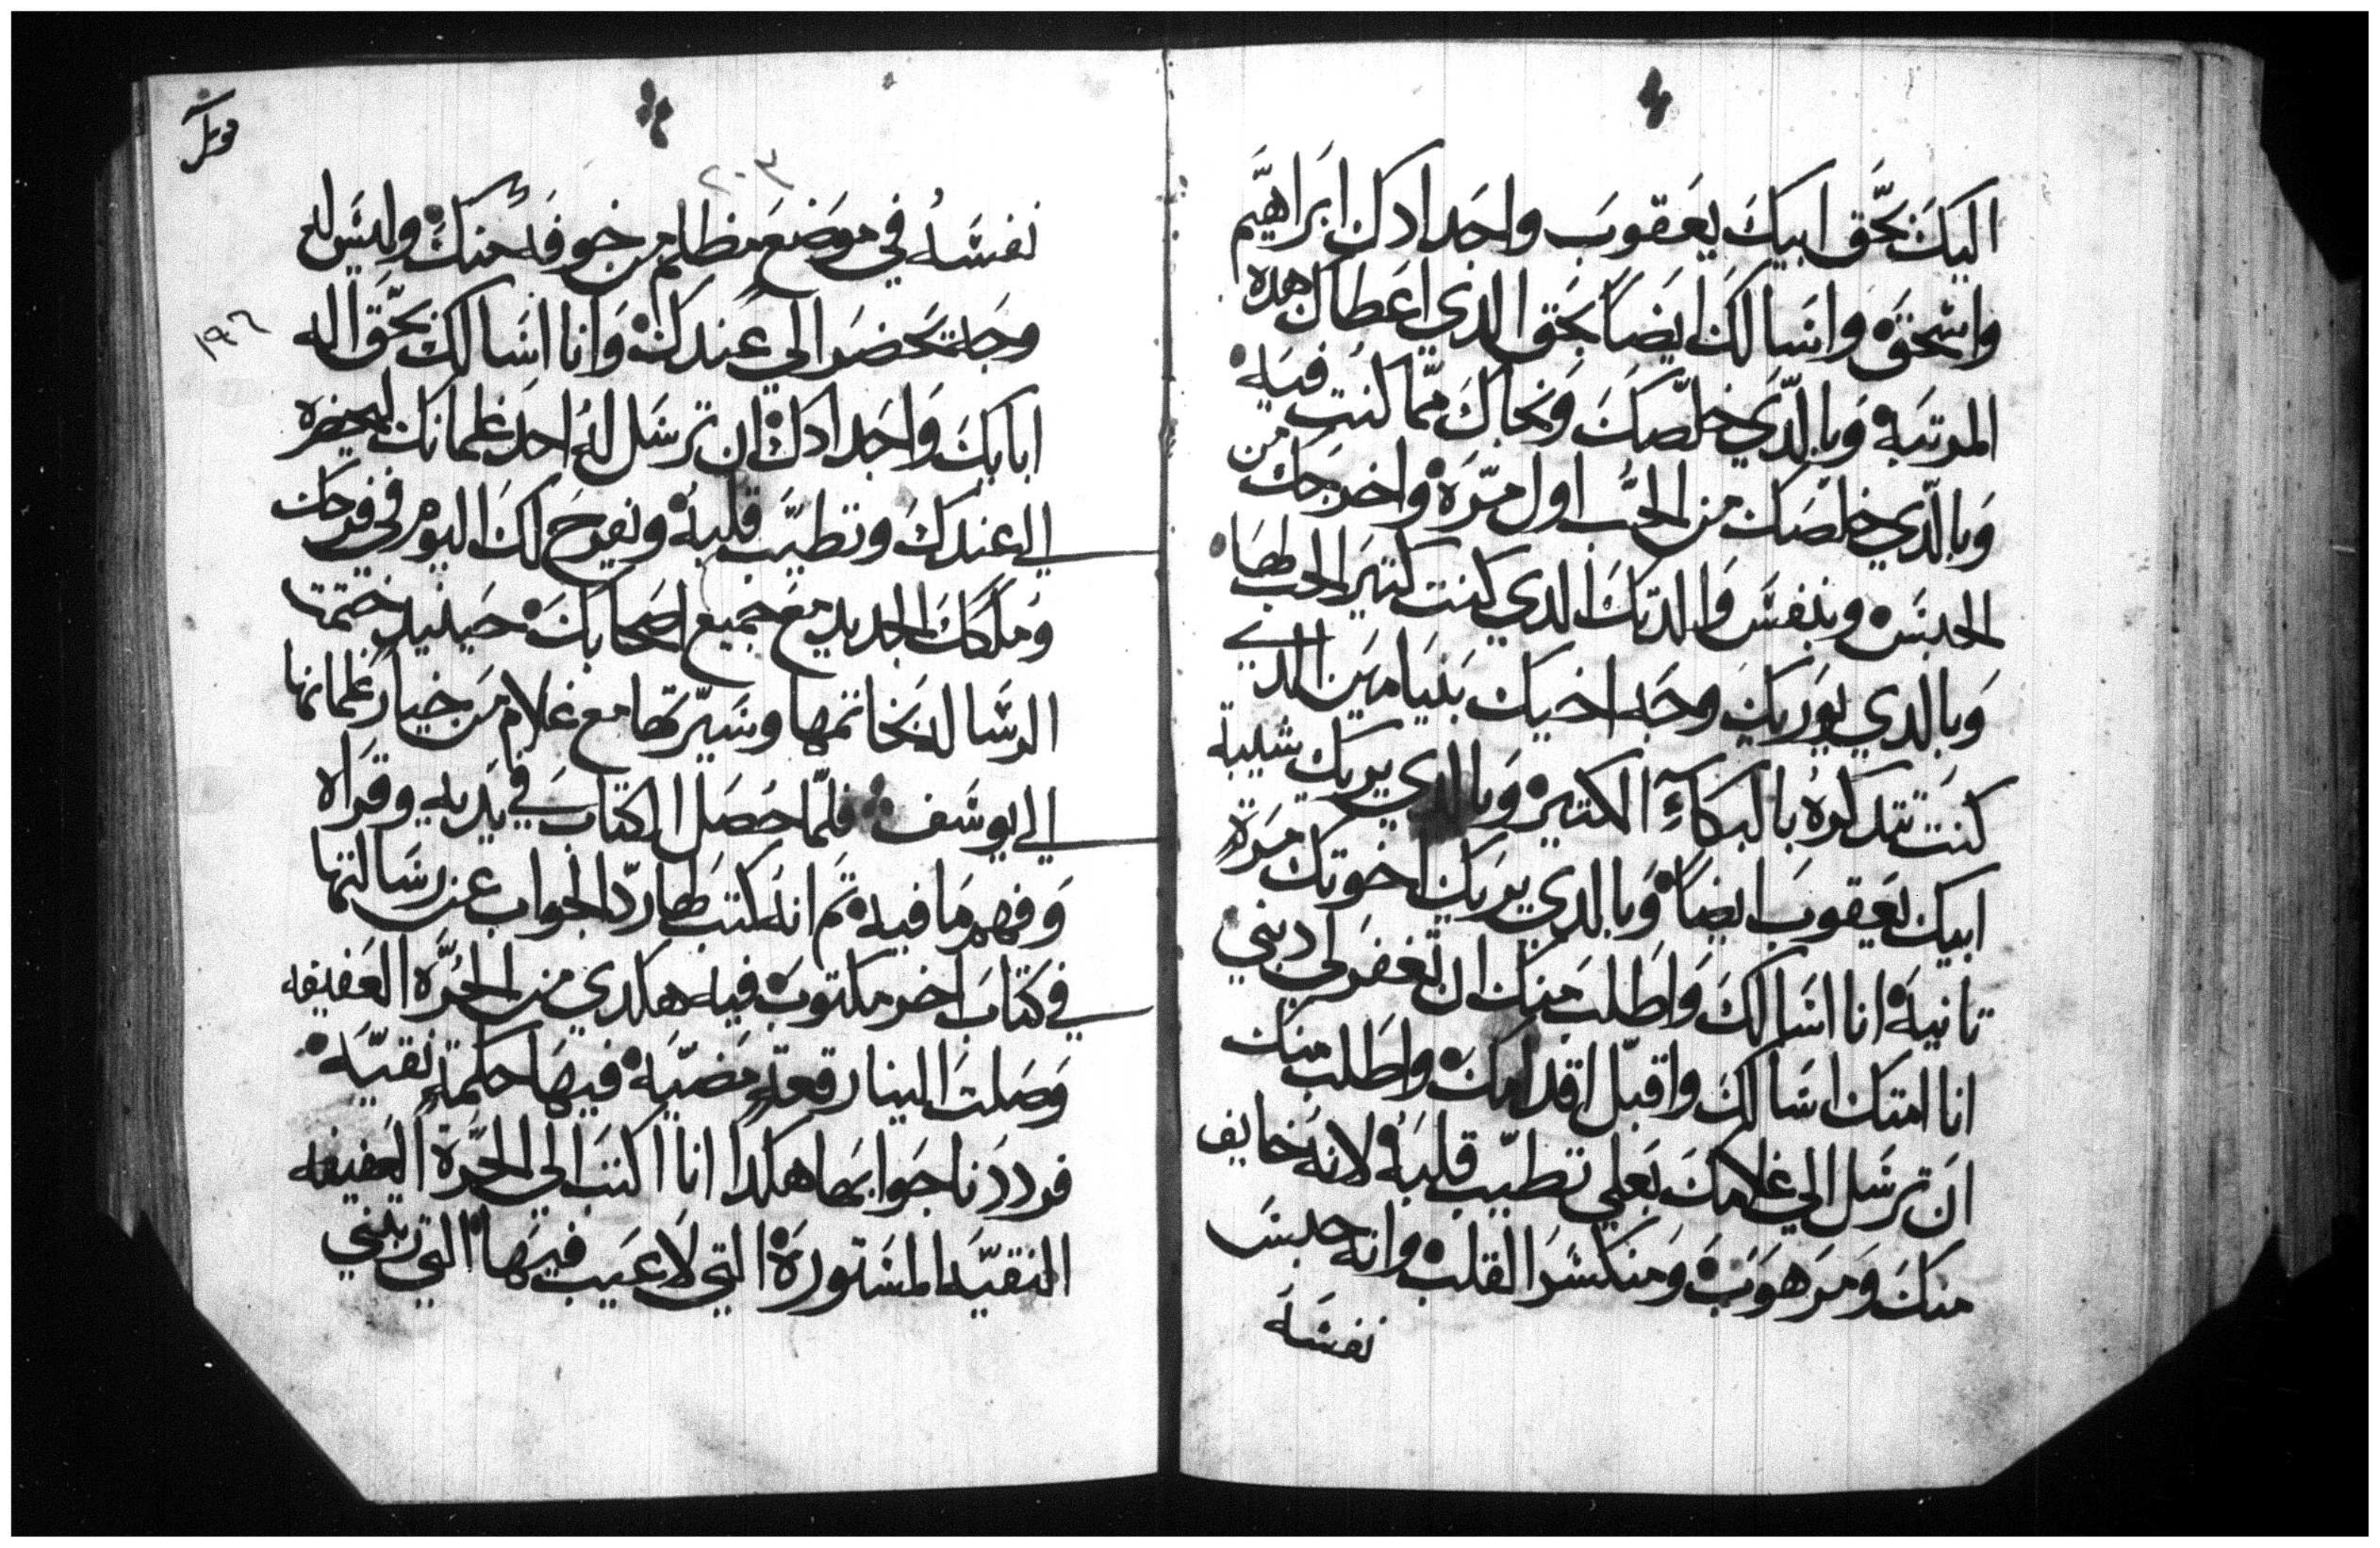 اليك بحق ابيك يعقوب واجدادك ابراهيم
واسحق وانسالك ايضاً بحق الدي اعطاك هده
المرتبه وبالدي خلصك ونجاك مما كنت فيه
وبالدي خلصك من الجب اول مره واخرجك من
الحبس وبنفس والدتك الدي كنت كتير الحب لها
وبالدي يوريك وجه اخيك بنيامين الدي
كنت تتدكره بالبكاء الكتير وبالدي يريك شيبة
ابيك يعقوب ايضاً وبالدي يريك اخوتك مرة
تانيه انا اسالك واطلب منك ان تغفر لي دنبي
انا امتك اسالك واقبل اقدامك واطلب منك
ان ترسل الي غلامك بعلي تطيب قلبه لانه خايف
منك ومرهوب ومنكسر القلب وانه حبس
نفسه
٢٠٣
١٩٦
نفسه في موضع مظلم من خوفه منك وليس له
وجه يحضر الي عندك وانا اسالك بحق اله
ابايك واجدادك ان ترسل له احد غلمانك ليحضره
الي عندك وتطيب قلبه ونفرح لك اليوم في فرحك
وملكك الجديد مع جميع اصحابك حينيد ختمت
الرساله بخاتمها وسيرتها مع غلام من خيار غلمانها
الي يوسف فلما حصل الكتاب في يديه وقراه
وفهم ما فيه تم انه كتب لها رد الجواب عن رسالتها
في كتاب اخر مكتوب فيه هكدي من الحره العفيفه
وصلت الينا رقعة مضيه فيها حكمة نقيه
فرددنا جوابها هكدا انا اكتب الي الحرة العفيفه
النقيه المستوره التي لا عيب فيها التي ربتني